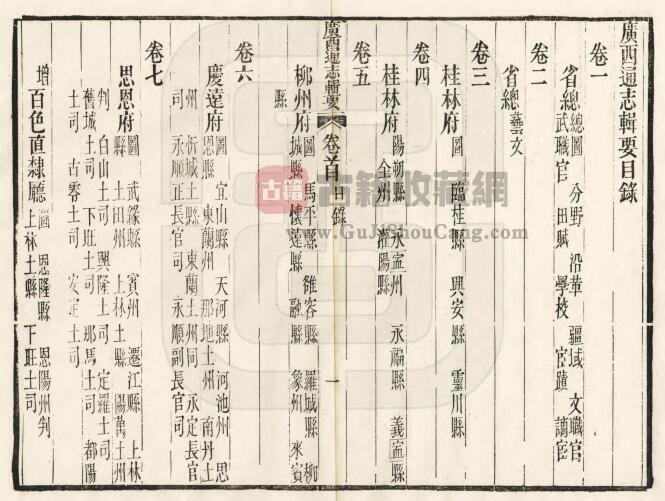 廣西通志輯要目錄
卷一
省總總圖 分野 沿革 疆域 文職官
武職官 田賦 學校 宦蹟 謫宦
卷二
省總藝文
卷三
桂林府圖 臨桂縣 興安縣 靈川縣
卷四
桂林府陽朔縣 永寧州 永福縣 義寧縣
全州 灌陽縣
卷五
柳州府圖 馬平縣 雒容縣 羅城縣 柳
城縣 懷遠縣 融縣 象州 來賓
縣
廣西通志輯要 卷首 目錄 一
卷六
慶遠府圖 宜山縣 天河縣 河池州 思
恩縣 東蘭州 那地土州 南丹土
州 忻城土縣 東蘭土州同 永定長官
司 永順正長官司 永順副長官司
卷七
思恩府圖 武緣縣 賓州 遷江縣 上林
縣 土田州 上林土縣 陽萬土州
判 白山土司 興隆土司 定羅土司
舊城土司 下旺土司 那馬土司 都陽
土司 古零土司 安定土司
增百色直隸廳圖 恩隆縣 恩陽州判
上林土縣 下旺土司
古籍
古籍收藏網
www.GuJiShouCang.com